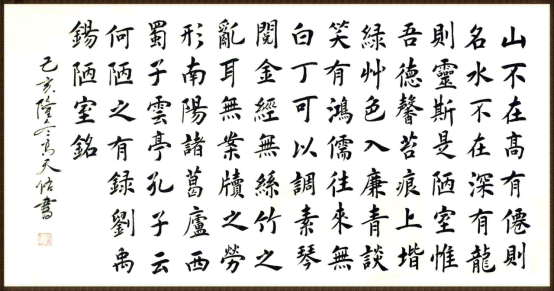 山不在高有僊則
名水不在深有龍
則靈斯是陋室惟
吾德馨苔痕上堦
綠艸色入廉青談
笑有鴻儒往來無
白丁可以調素琴
閱金經無絲竹之
亂耳無案牘之勞
形南陽諸葛廬西
蜀子雲亭孔子云
何陋之有録劉禹
錫陋室銘
己亥隆冬高天佑書